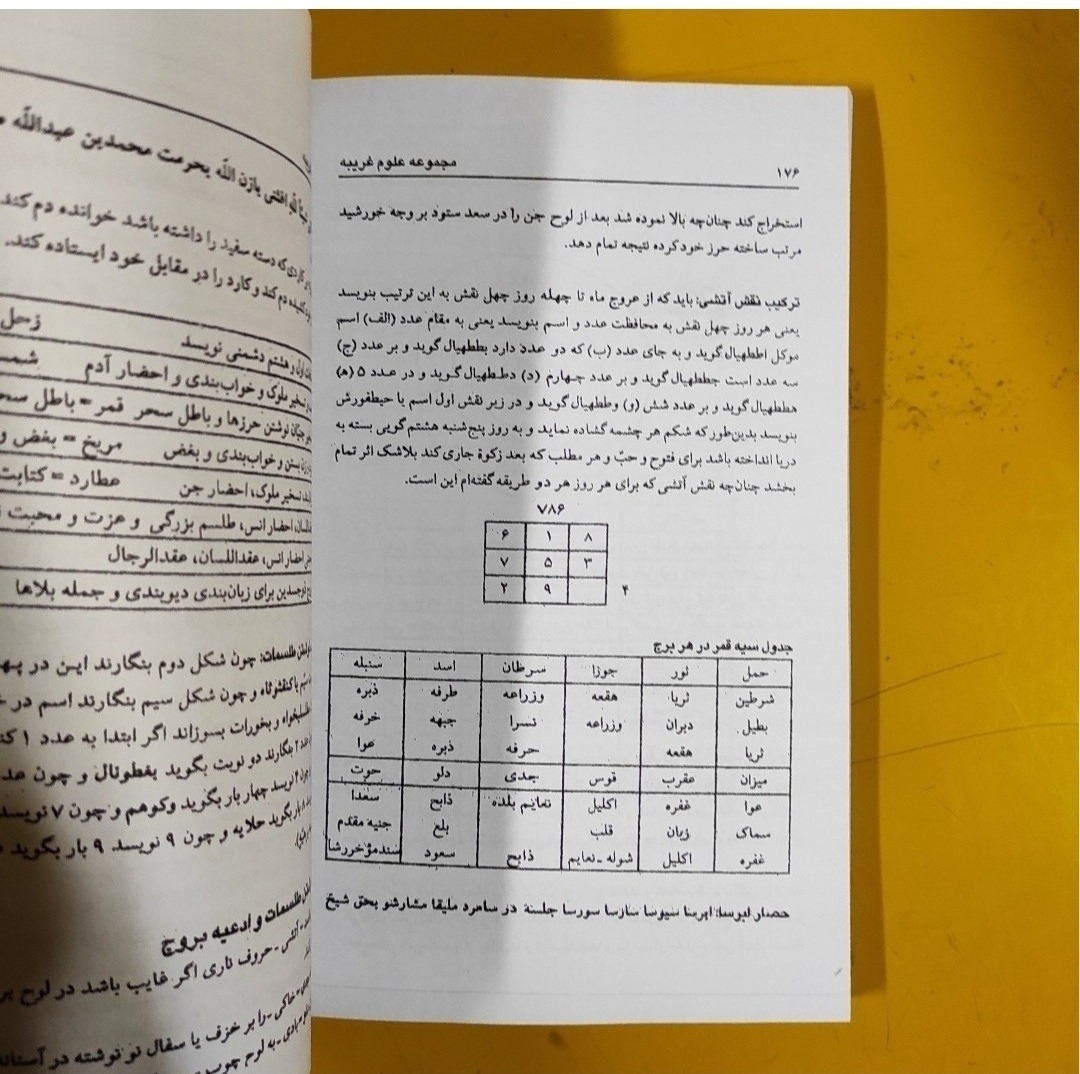 مجموعه علوم غریبه ۱۷۶
استخراج کند چنان‌چه بالا نموده شد بعد از لوح جن را در سعد ستود بر وجه خورشید
مرتب ساخته حرز خود کرده نتیجه تمام دهد.
ترکیب نقش آتشی: باید که از عروج ماه تا چهله روز چهل نقش به این ترتیب بنویسد
یعنی هر روز چهل نقش به محافظت عدد و اسم بنویسد یعنی به مقام عدد (الف) اسم
موکل اططهیال گوید و به جای عدد (ب) که دو عدد دارد بططهیال گوید و بر عدد (ج)
سه عدد است جططهیال گوید و بر عدد چهارم (د) دططهیال گوید و در عدد ۵ (ه)
هططهیال گوید و بر عدد شش (و) وططهیال گوید و در زیر نقش اول اسم یا حیطفورش
بنویسد بدین‌طور که شکم هر چشمه گشاده نماید و به روز پنج‌شنبه هشتم گویی بسته به
دریا انداخته باشد برای فتوح و حبّ و هر مطلب که بعد زکوة جاری کند بلاشک اثر تمام
بخشد چنان‌چه نقش آتشی که برای هر روز هر دو طریقه گفته‌ام این است.
۷۸۶
۸ ۱ ۶
۳ ۵ ۷
۴ ۹ ۲
جدول سیه قمر در هر برج
حمل ثور جوزا سرطان اسد سنبله
شرطین ثریا هقعه وزراعه طرفه ذبره
بطیل دبران وزراعه نسرا جبهه خرفه
ثریا هقعه حرفه ذبره عوا
میزان عقرب قوس جدی دلو حوت
عوا غفره اکلیل نعایم بلده ذابح سعدا
سماک زبان قلب بلع جنیه مقدم
غفره اکلیل شوله ـ نعایم ذابح سعود سندمؤخررشا
حصار لبرسا: ایرسا سیوسا سازسا سورسا جلسنة در سامرد ملیقا مشارشو بحق شیخ
یازن الله بحرمت محمدبن عبدالله
دسته سفید را داشته باشد خوانده دم کند
دم کند و کارد را در مقابل خود ایستاده کند.
هشتم دشمنی نویسد زحل
تسخیر ملوک و خواب‌بندی و احضار آدم
نوشتن حرزها و باطل سحر قمر = باطل
بستن و خواب‌بندی و بغض مریخ = بغض و
تسخیر ملوک، احضار جن عطارد = کتابت
احضار انس، طلسم بزرگی و عزت و محبت
احضار انس، عقداللسان، عقدالرجال
برای زبان‌بندی دیوبندی و جمله بلاها
طلسمات: چون شکل دوم بنگارند این در
و چون شکل سیم بنگارند اسم در
و بخورات بسوزاند اگر ابتدا به عدد ۱
بنگارند دو نوبت بگوید یفطوئال و چون
نویسد چهار بار بگوید وکوهم و چون ۷ نویسد
بار بگوید حلایه و چون ۹ نویسد ۹ بار بگوید
طلسمات و ادعیه بروج
آتشی ـ حروف ناری اگر غایب باشد در لوح
خاکی ـ را بر خزف یا سفال نو نوشته در آستانه
بادی ـ به لوح چوب